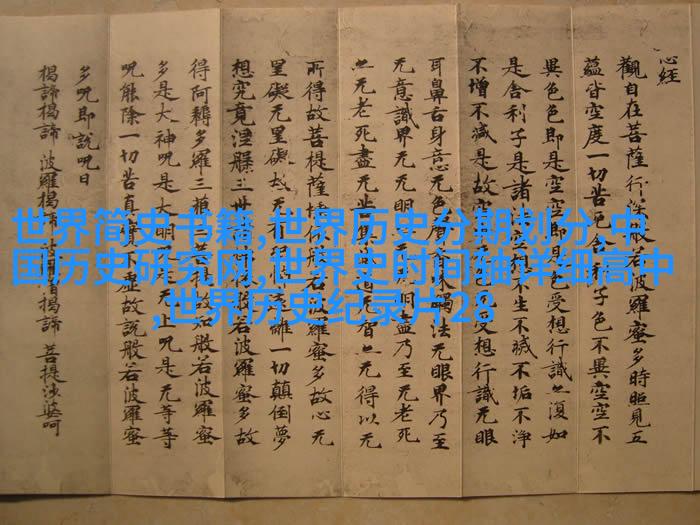 心经
觀自在菩薩行深般若波羅蜜多時照見五
蘊皆空度一切苦厄舍利子色不異空空不
異色色即是空空即是色受想行識亦復如
是舍利子是諸法空想不生不滅不垢不淨
不增不減是故空受想行識无眼
耳鼻舌身意无色聲香味觸法无眼界乃至
无意識界无无明明盡乃至无老死
亦无老死盡无苦道无智亦无得以无
所得故菩提薩埵依般若波羅蜜多故心无
罣礙无罣礙故无有遠離一切顛倒夢
想究竟涅槃三世般若波羅蜜多故
得阿耨多羅三藐三菩提故知般若波羅蜜
多是大神呪是大明呪是无上呪是无等等
呪能除一切苦真實不虛故說般若波羅蜜
多呪即說呪曰
揭諦揭諦 波羅揭諦 波羅僧揭諦 菩提娑婆呵
世界简史书籍,世界历史分期划分,中
国历史研究网,世界史时间轴详细高中
,世界历史纪录片28